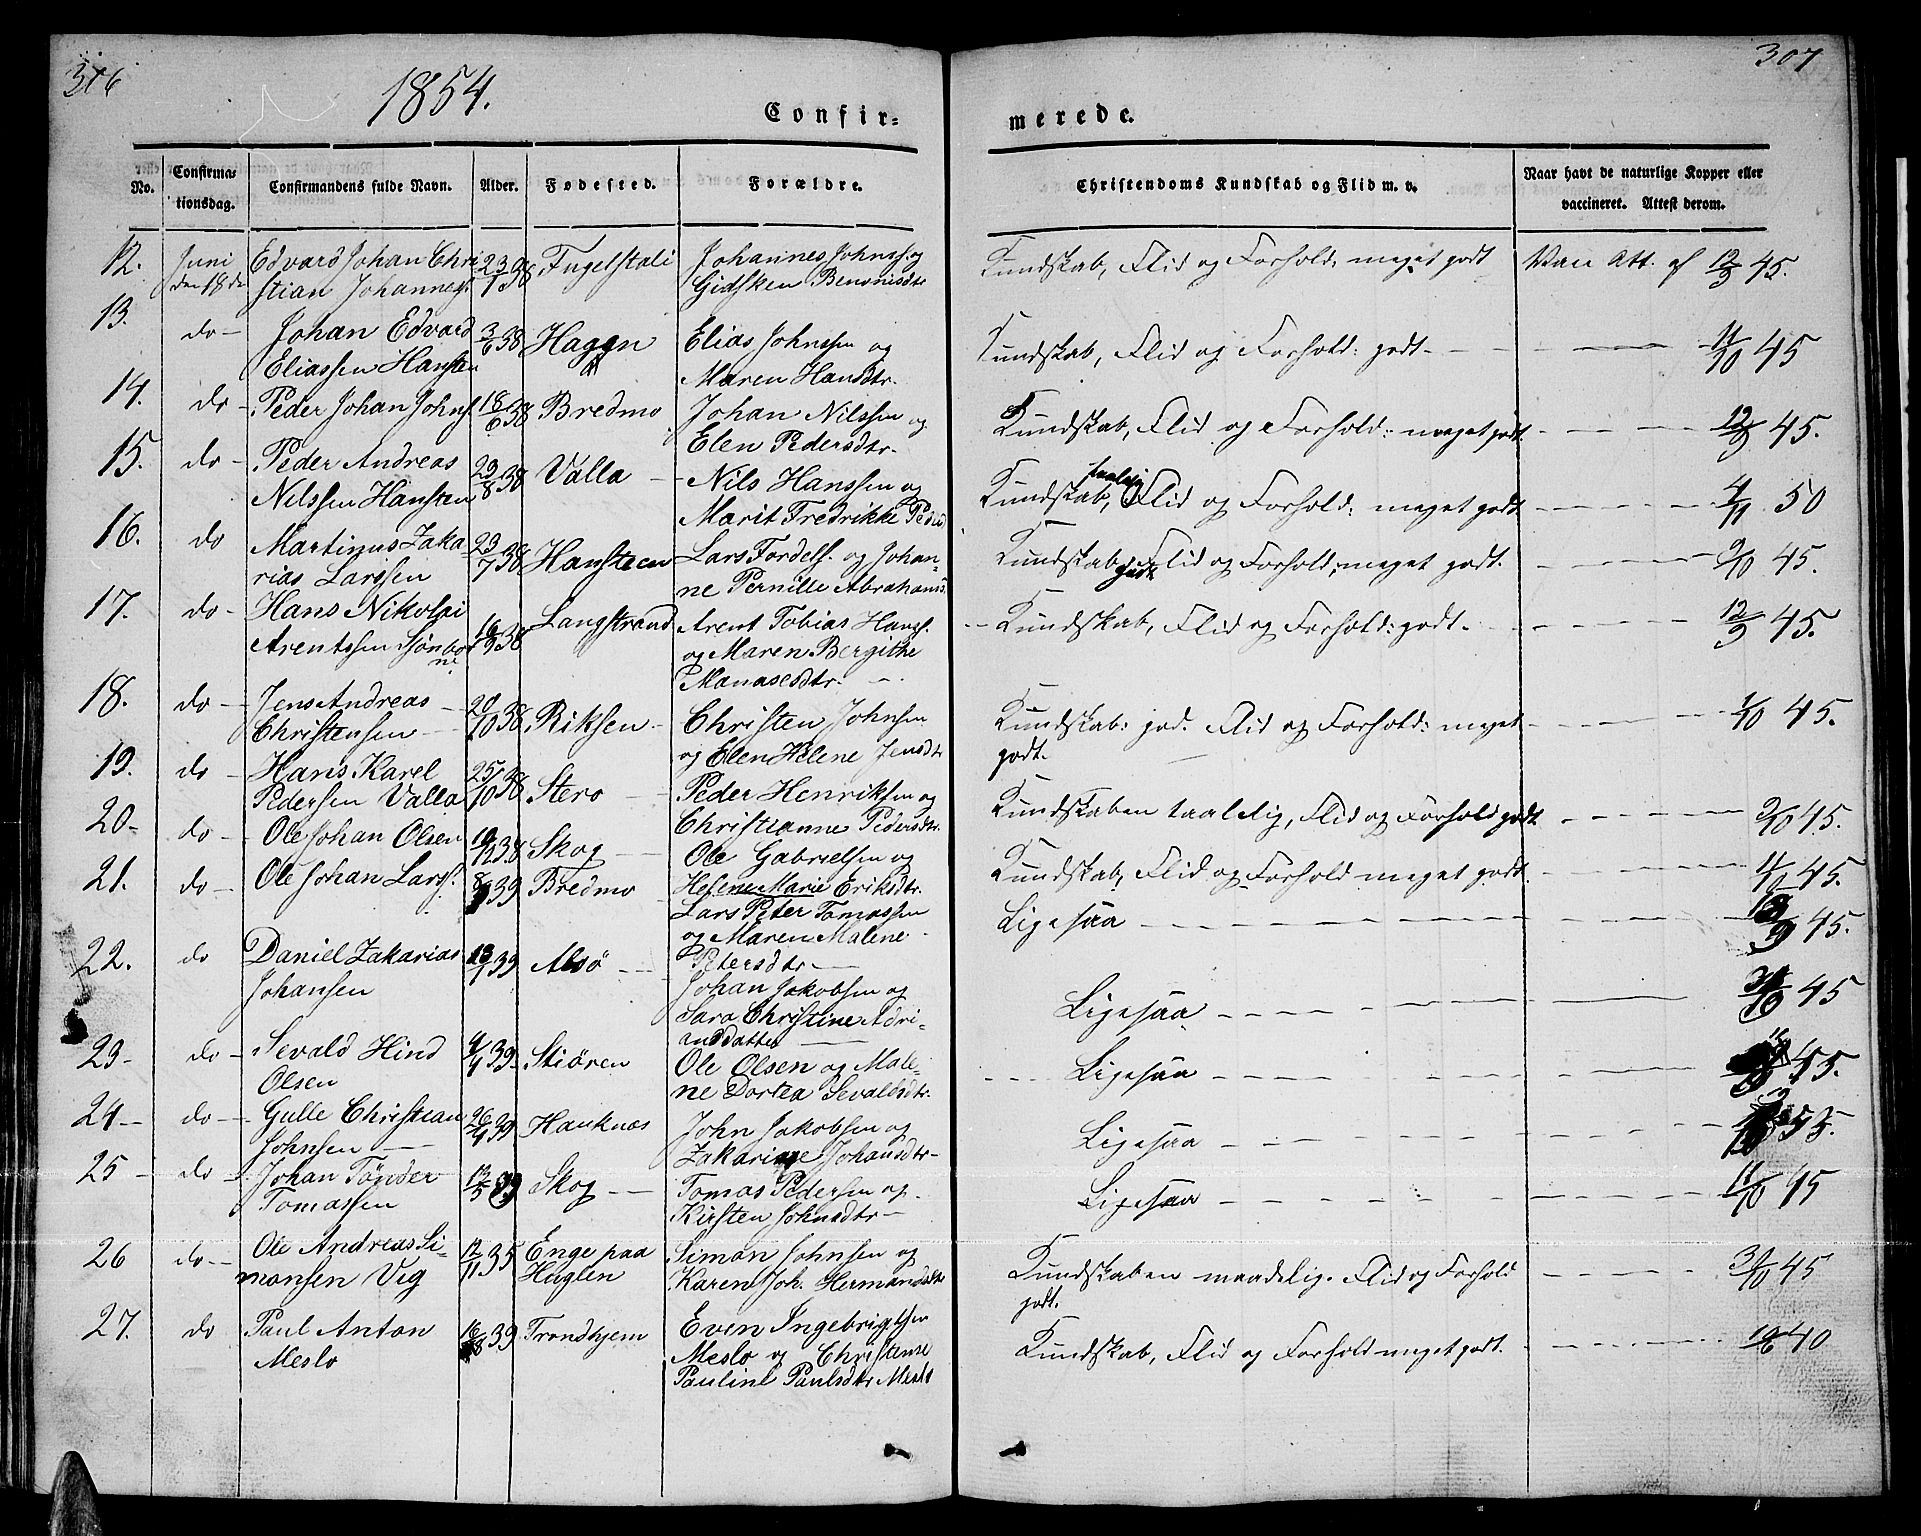 306
307
1854.
Confir-
merede.
No.
Confirma-
tionsdag.
Confirmandens fulde Navn.
Alder.
Fødested.
Forældre.
Christendoms Kundskab og Flid m. v.
Naar havt de naturlige Kopper eller
vaccineret. Attest derom.
12. Juni Edvard Johan Chri 23/1 38 Fugelstali Johannes Johnss. og Kundskab, Flid og Forhold: meget godt Vacc Att. af 12/9 45.
den 18de stian Johannes. Gidsken Benonisdtr
13. do - Johan Edvard 3/6 38 Hagen Elias Johnssen og Kundskab, Flid og Forhold: godt - 11/10 45
Eliassen Hansten Maren Hansdtr.
14. do - Peder Johan Johns. 18/6 38 Bredmo Johan Nilssen og Kundskab, Flid og Forhold: meget godt 12/9 45.
Elen Pedersdtr.
15. do - Peder Andreas 29/8 38 Valla - Nils Hanssen og Kundskab, taalelig Flid og Forhold: meget godt 4/11 50
Nilssen Hansten Marit Fredrikke Peders
16. do Martinus Zaka 23/7 38 Hansteen Lars Tordels. og Johan- Kundskab godt, Flid og Forhold: meget godt. 9/10 45.
rias Larssen ne Pernille Abrahams
17. do - Hans Nikolai 16/9 38 Langstrand Arent Tobias Hanss. Kundskab, Flid og Forhold: godt. 12/9 45.
Arentssen Sjønbo og Maren Bergithe
ne Manasesdtr. -
18. do - Jens Andreas 20/10 38 Riksen - Christen Johnsen Kundskab: god. Flid og Forhold: meget 1/10 45.
Christensen - og Elen Helene Jensdtr godt.
19. do - Hans Karel 25/10 38 Stero Peder Henriksen og Kundskaben taalelig, Flid og Forhold godt 9/10 45.
Pedersen Valla Christianne Pedersdtr.
20 - do - Ole Johan Olsen 10/12 38 Skog - Ole Gabrielsen og Kundskab, Flid og Forhold meget godt. 11/10 45.
Helene Marie Eriksdtr.
21. do - Ole Johan Larss. 39 Bredmo Lars Peter Tomassen Ligesaa 45.
og Maren Malene
Petersdtr -
22. do Daniel Zakarias 13/1 39 Alsö - Johan Jakobsen og Ligesaa 45
Johansen Sara Christine Adri-
ansdatter -
23 - do - Sevald Hind 4/4 39 Stiören Ole Olsen og Male- Ligesaa 45.
Olsen ne Dortea Sevaldsdtr.
24 - do - Gulle Christian 26/4 39 Hauknæs John Jakobsen og Ligesaa 55.
Johnsen - Zakarine Johansdtr -
25 - do - Johan Tönder 12/5 39 Skog - Tomas Pedersen og Ligesaa 11/10 45
Tomassen Kirsten Johnsdtr -
26 do - Ole Andreas Si- 12/11 35 Enge paa Simon Johnsen og Kundskaben maadelig. Flid og Forhold 45
monsen Vig Huglen Karen Joh. Hermansdatr godt.
27. do Paul Anton 16/8 39 Trondhjem Even Ingebrigtsen Kundskab, Flid og Forhold meget godt. 40
Meslo Meslo og Christense
Pauline Paulsdtr Meslo